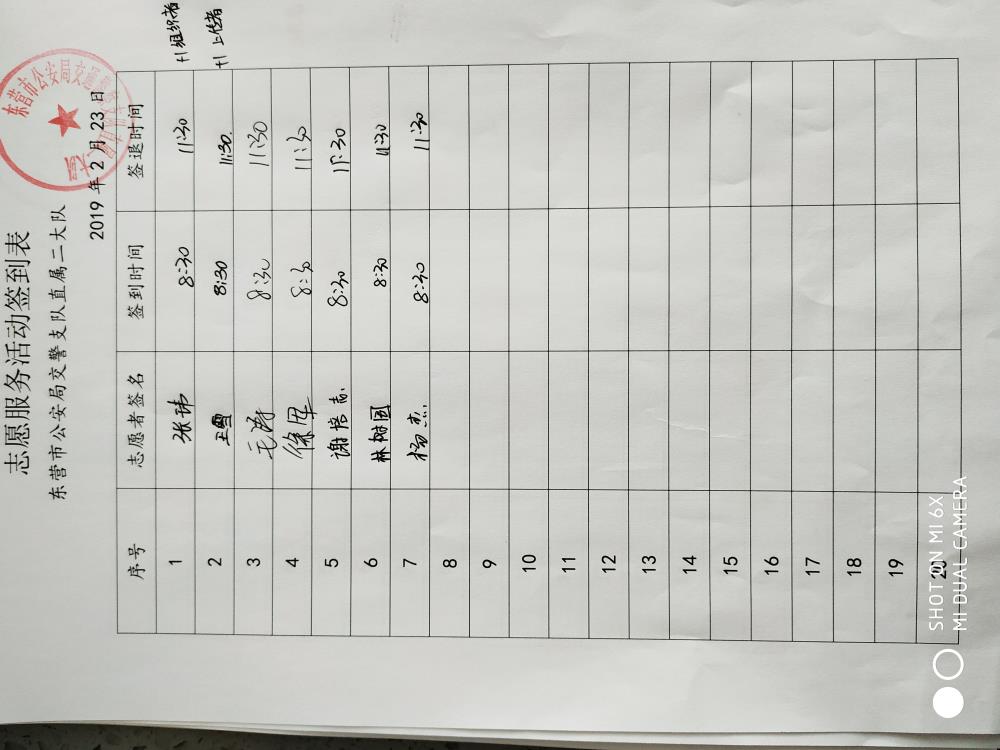 志愿服务活动签到表
东营市公安局交警支队直属二大队
2019 年 2 月 23 日
序号 志愿者签名 签到时间 签退时间
1 张玮 8:30 11:30 +1 组织者
2 王雪 8:30 11:30. +1 上传者
3 毛涛 8:30 11:30
4 徐军 8:30 11:30
5 谢培志 8:30 11:30
6 林树国 8:30 11:30
7 杨杰 8:30 11:30
8
9
10
11
12
13
14
15
16
17
18
19
20
东营市公安局交通
SHOT ON MI 6X
MI DUAL CAMERA